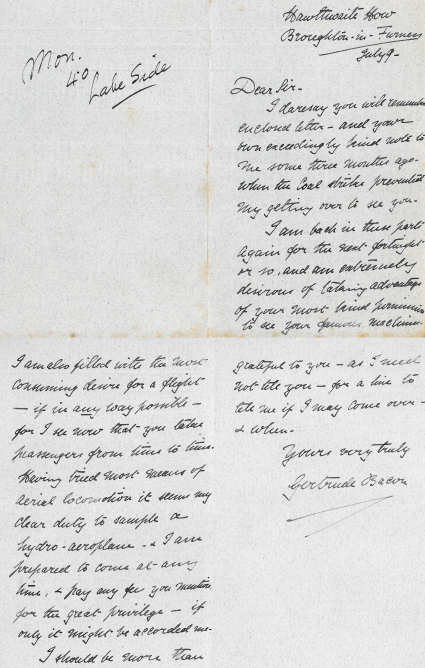 Mon.
40
Lake Side
Hawthwaite How
Broughton-in-Furness
July 9-
Dear Sir-
I daresay you will remember
enclosed letter - and your
own exceedingly kind note to
me some three months ago-
when the Coal strike prevented
my getting over to see you.
I am back in these parts
again for the next fortnight
or so, and am extremely
desirous of taking advantage
of your most kind permission
to see your famous machine.
I am also filled with the most
consuming desire for a flight
- if in any way possible -
for I see now that you take
passengers from time to time.
Having tried most means of
aerial locomotion it seems my
clear duty to sample a
hydro-aeroplane - & I am
prepared to come at any
time, & pay any fee you mention
for the great privilege - if
only it might be accorded me-
I should be more than
grateful to you - as I need
not tell you - for a line to
tell me if I may come over -
& when-
Yours very truly
Gertrude Bacon